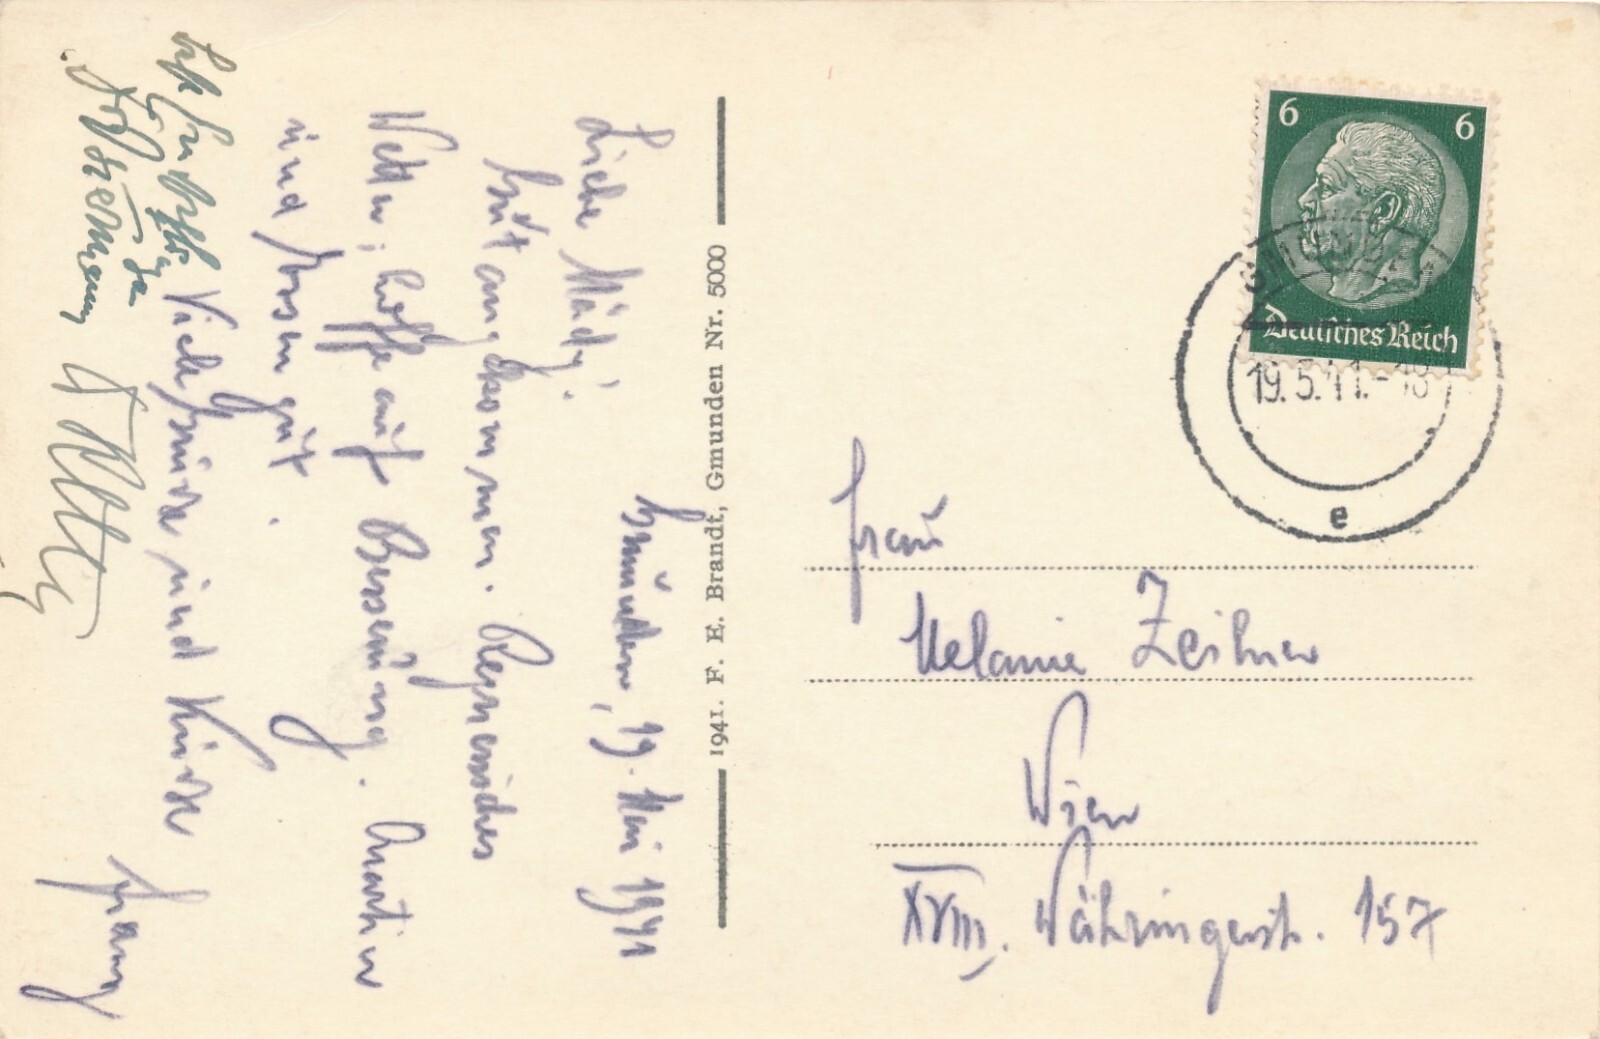 Gmunden, 19. Mai 1941
Liebe Mädy!
Gut angekommen. Regnerisches
Wetter, hoffe auf Besserung. Quartier
und Essen gut.
Viele Grüsse und Küsse
Franz
1941. F. E. Brandt, Gmunden Nr. 5000
6 6
Deutsches Reich
GMUNDEN
19.5.41.-18
e
Frau
Melanie Zeilner
Wien
XVIII. Währingerstr. 157